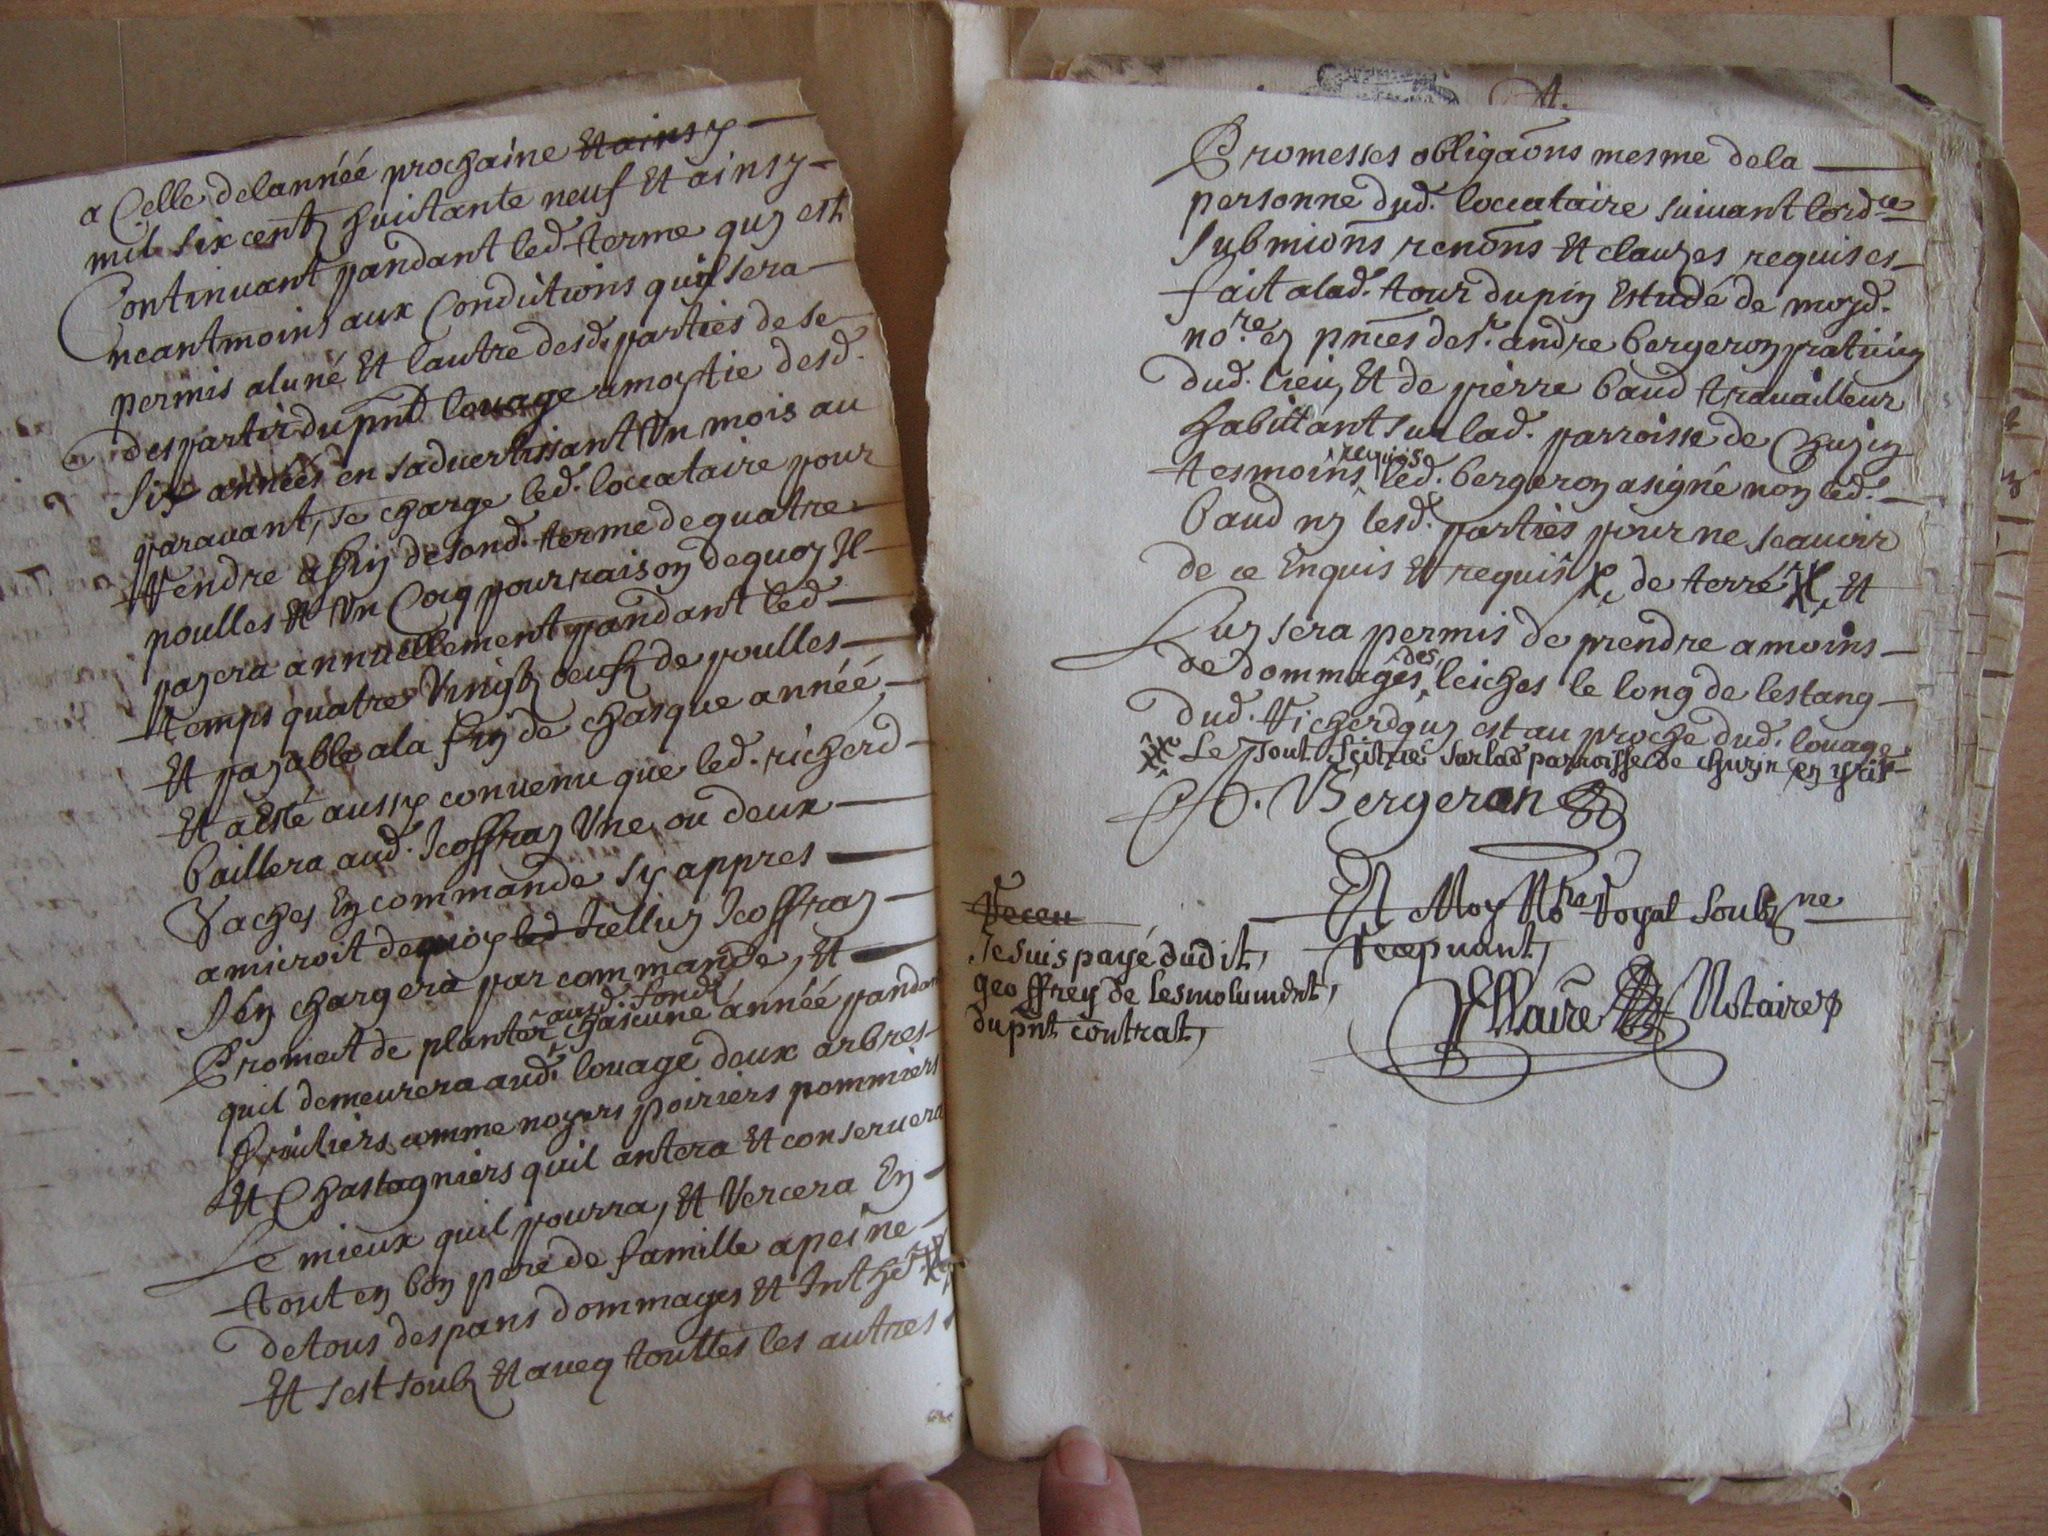 a Celle delannéé prochaine Et ainsy
mil six centz huictante neuf Et ainsy
Continuant pandant led. terme quy est
neantmoins aux Conditions quil sera
permis aluné Et lautre desd. parties de se
despartir du pnt louage amoytie desd.
six années en sadvertissant Un mois au
paravant, se charge led. loccataire pour
Rendre a fin de sond. terme de quatre
poulles Et Un Coq pour raison dequoy Il
payera annuellement pandant led
temps quatre Vingtz oeufz de poulles
Et payable ala fin de chasque année,
Et a Esté aussy convenu que led. richerd
baillera aud. Jeoffray Une ou deux
Vaches En commande sy appres
amicroit dequoy led Jcelluy Jeoffray
sen chargera par commande, Et
aud. fondz
Promect de planter chascune année pandant
quil demeurera aud. louage deux arbres
fruitiers comme noyers poiriers pommiers
Et Chastagniers quil antera Et conservera
Le mieux quil pourra, Et Versera En
tout en bon pere de famille apeine
de tous despans dommages Et Inthes
Et sest soubz Et aveq touttes les autres
A.
Promesses obligaons mesme dela
personne dud. loccataire suivant lordce
submions renons Et clauzes requises
fait alad. tour dupin Estude de moyd.
nore. en pnces de sr. andre bergeron praticien
dud. lieu, Et de pierre baud travailleur
habittant sur lad. parroisse de Chuzin
requis
tesmoins led. bergeron a signé non led.
baud ny lesd. parties pour ne scavoir
de ce Enquis Et requis X, de terre X, Et
Luy sera permis de prendre a moins
des
de dommages leiches le long de lestang
dud. Richerd quy est au proche dud. louage
Le Tout scitue sur lad parroisse de chuzin
A. Bergeron
Et Moy Nore Royal Soubzne
Recepvant,
Receu
Je suis payé dudit,
geoffrey de lesmolument,
du pnt contrat,
Notaire